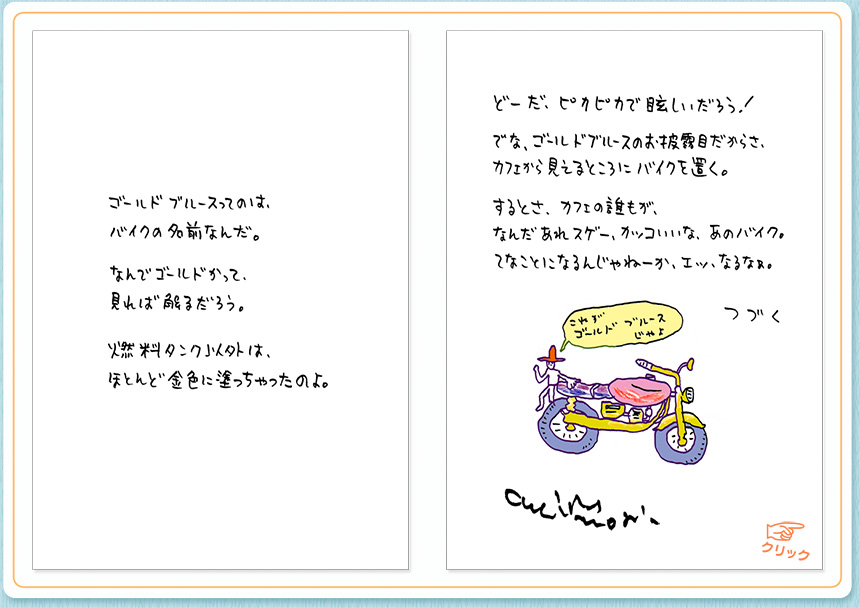 ゴールドブルースってのは、
バイクの名前なんだ。
なんでゴールドかって、
見れば解るだろう。
燃料タンク以外は、
ほとんど金色に塗っちゃったのよ。
どーだ、ピカピカで眩しいだろう!
でな、ゴールドブルースのお披露目だからさ、
カフェから見えるところにバイクを置く。
するとさ、カフェの誰もが、
なんだあれスゲー、カッコいいな、あのバイク。
てなことになるんじゃねーか、エッ、なるなぁ。
つづく
これが
ゴールド ブルース
じゃよ
クリック